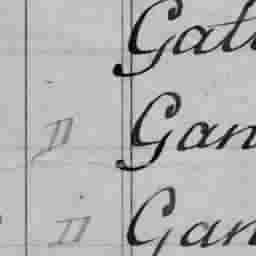 Gat
" Gan
" Gan